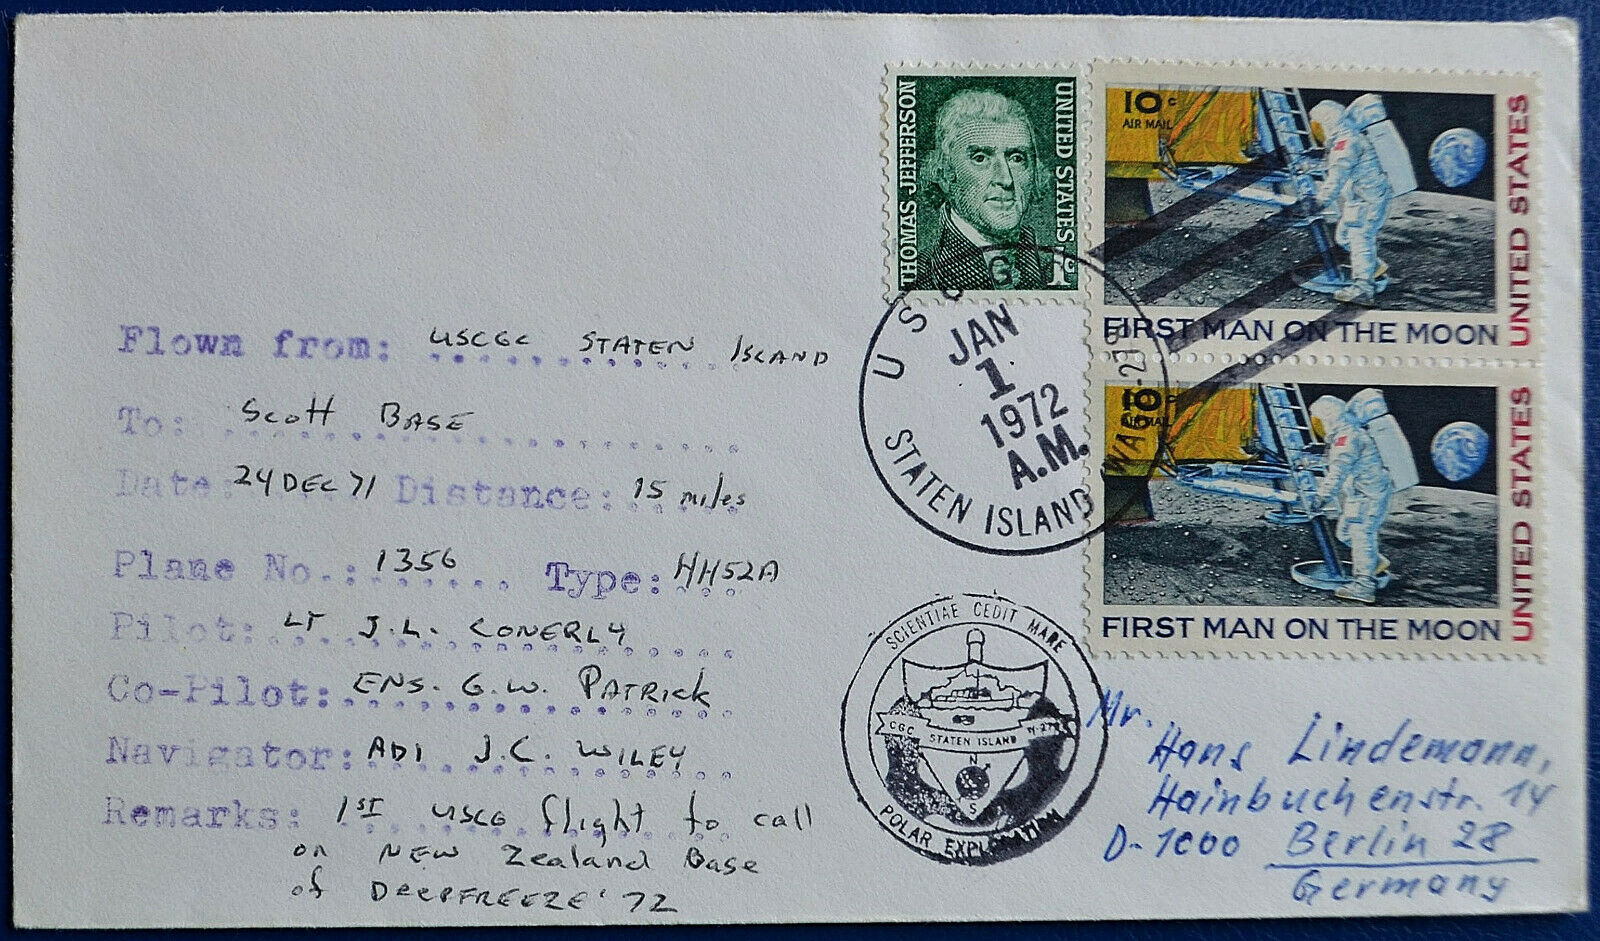 Flown from: USCGC STATEN ISLAND
To: Scott BASE
Date: 24 DEC 71 Distance: 15 miles
Plane No.: 1356 Type: HH52A
Pilot: LT J.L. CONERLY
Co-Pilot: ENS. G.W. PATRICK
Navigator: AD1 J.C. WILEY
Remarks: 1ST USCG flight to call
on NEW Zealand Base
of DEEPFREEZE '72
THOMAS JEFFERSON
UNITED STATES
1c
10c
AIR MAIL
FIRST MAN ON THE MOON
UNITED STATES
10c
AIR MAIL
FIRST MAN ON THE MOON
UNITED STATES
JAN
1
1972
A.M.
STATEN ISLAND
SCIENTIAE CEDIT MARE
CGC STATEN ISLAND
N
S
POLAR EXPLORATION
Mr.
Hans Lindemann,
Hainbuchenstr. 14
D-1000 Berlin 28
Germany